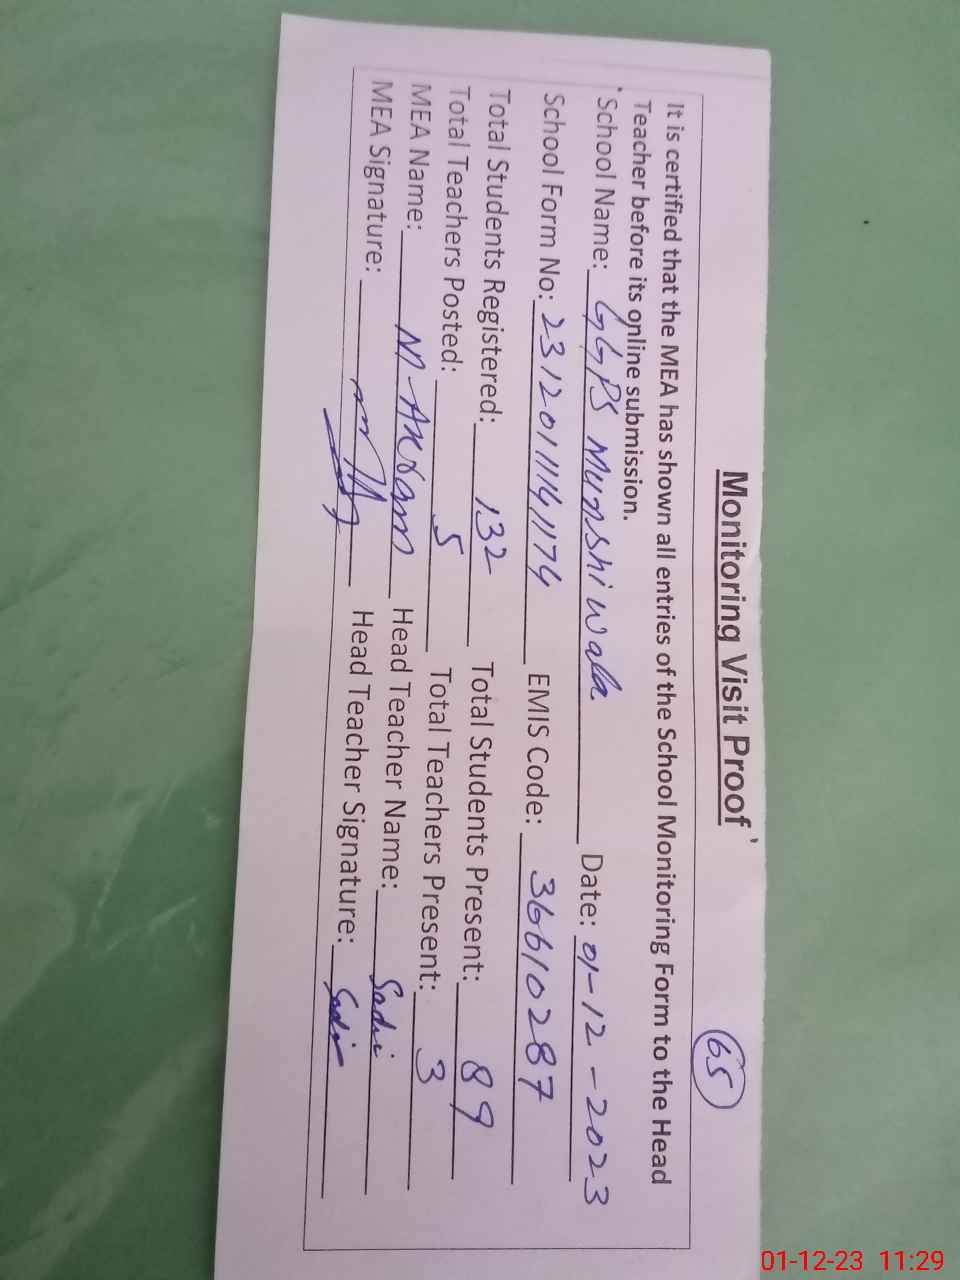 65
Monitoring Visit Proof
It is certified that the MEA has shown all entries of the School Monitoring Form to the Head
Teacher before its online submission.
School Name: GGPS Munshi wala Date: 01-12-2023
School Form No: 2312011141174 EMIS Code: 36610287
Total Students Registered: 132 Total Students Present: 89
Total Teachers Posted: 5 Total Teachers Present: 3
MEA Name: M-Akram Head Teacher Name: Sadi
MEA Signature: Head Teacher Signature: Sadi
01-12-23 11:29